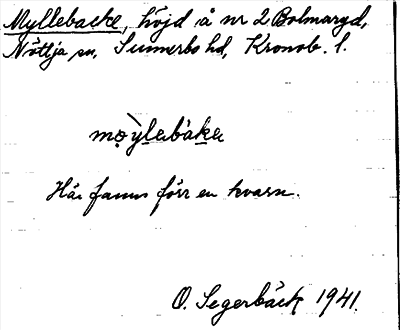 Myllebacke, höjd å nr 2 Bolmaryd,
Nöttja sn, Sunnerbo hd, Kronob. l.
Här fanns förr en kvarn.
O. Segerbäck 1941.